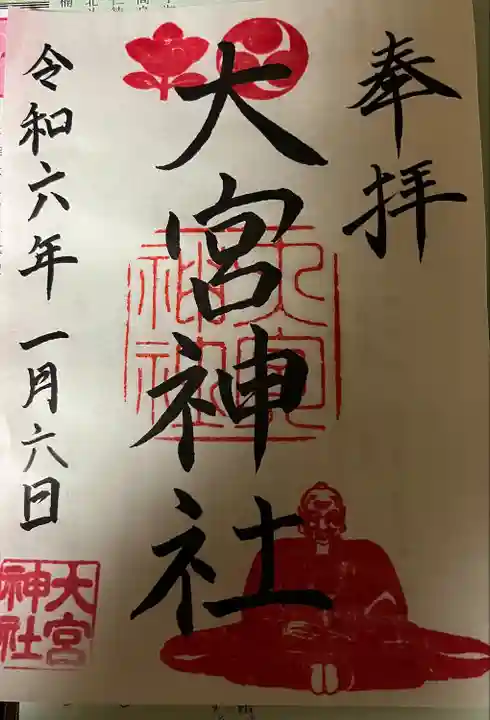 奉拝
大宮神社
大宮神社
令和六年一月六日
大宮
神社